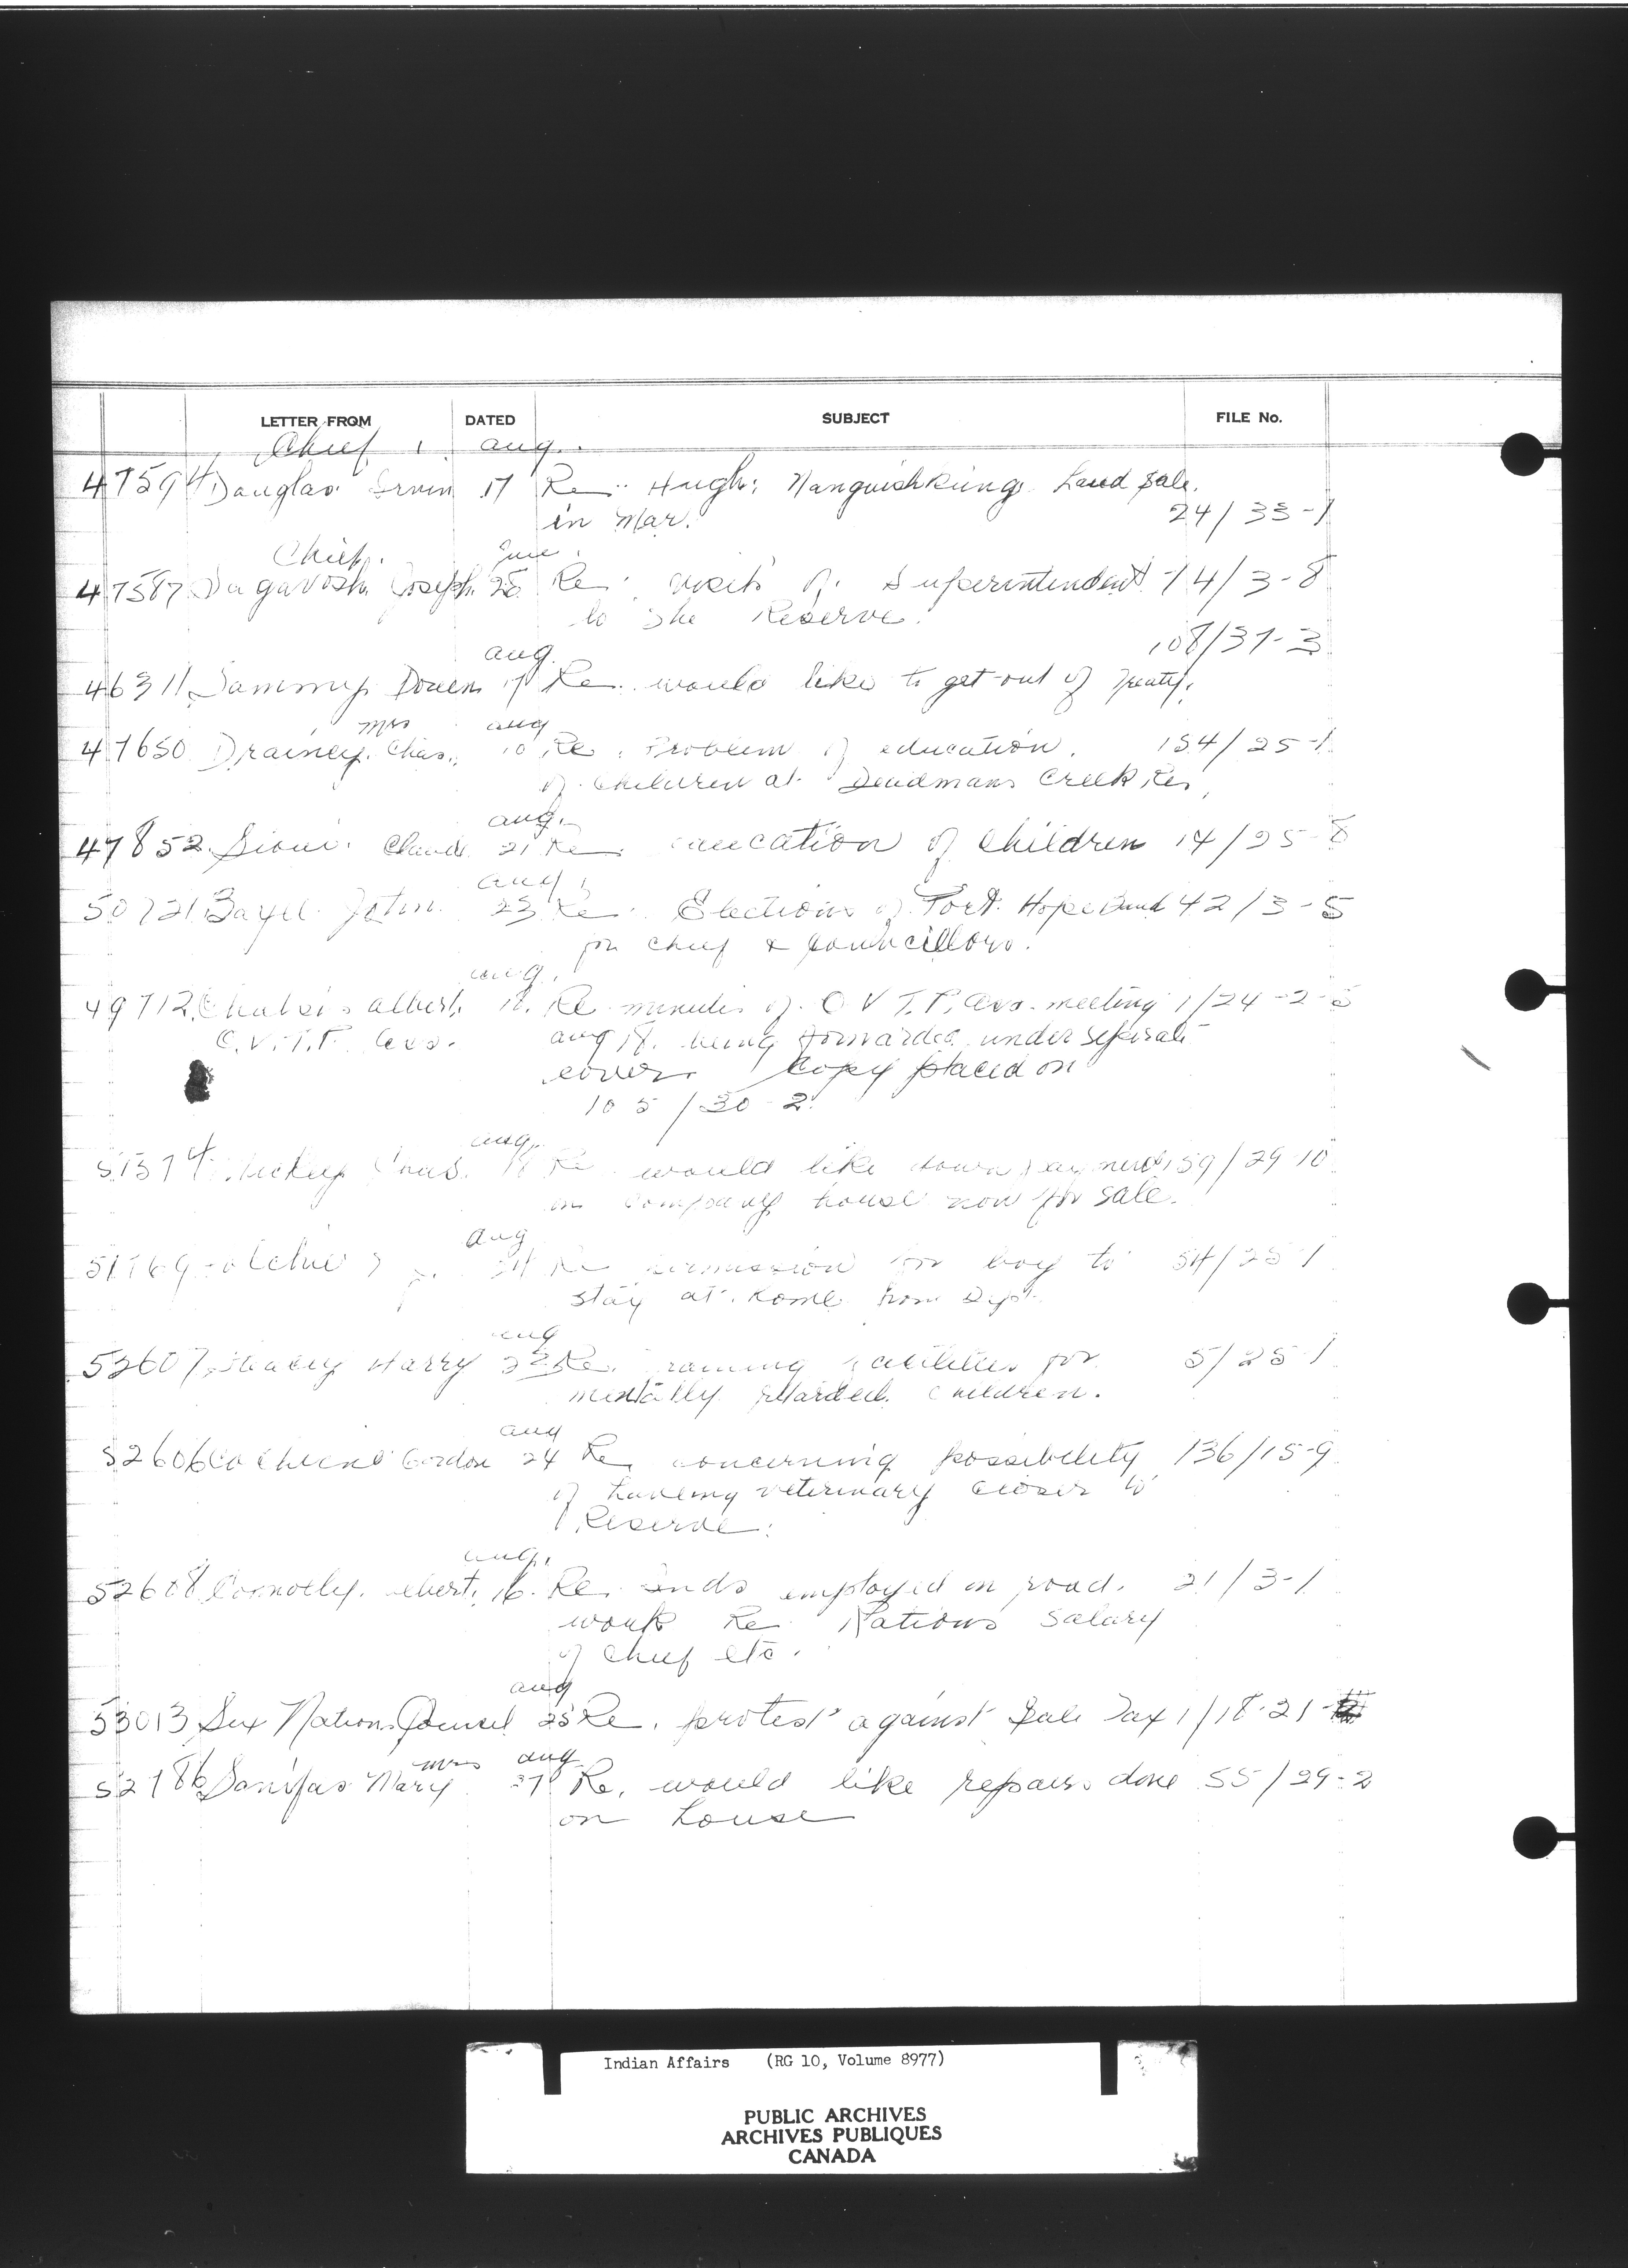 LETTER FROM DATED SUBJECT FILE No.
Chief aug.
47594 Douglas Irvin 17 Re: Hugh: Nanguishkung. Land Sale.
in Mar. 24/33-1
Chief. June
47587 Joseph 28 Re: visits of Superintendent 14/3-8
to the Reserve.
108/37-3
aug.
46311 Sammy 17 Re. would like to get out of Treaty.
mrs aug
47650 Drainey. Chas., 10 Re. Problem of education. 154/25-1
of children at Deadmans Creek Res.
aug.
47852 Sioui. Claude 21 Re. education of Children 14/25-8
aug.
50721 John. 23 Re. Elections of Fort Hope Band 42/3-5
for chief & councillors.
aug.
49712 Albert, 18. Re minutes of O V T. F. Ass. meeting 1/24-2-5
O.V.T.F. Ass. aug 18. being forwarded under separate
cover. Copy placed on
105/30-2.
aug.
51374 18 Re would like down payment 159/29-10
on company house now for sale.
aug
51769 24 Re permission for boy to 54/25-1
stay at home from Dept.
aug
52607 Harry 23 Re. Training facilities for 5/25-1
mentally retarded children.
aug
52606 Cochrane Gordon 24 Re. concerning possibility 136/15-9
of having veterinary closer to
Reserve.
aug.
52608 Connolly. 16. Re. Inds employed on road. 21/3-1
work Re Rations salary
of Chief etc.
aug
53013 Six Nations Council 25 Re. protest against Sale Tax 1/18-21-
mrs aug
52786 Mary 27 Re. would like repairs done 55/29-2
on house
Indian Affairs (RG 10, Volume 8977)
PUBLIC ARCHIVES
ARCHIVES PUBLIQUES
CANADA